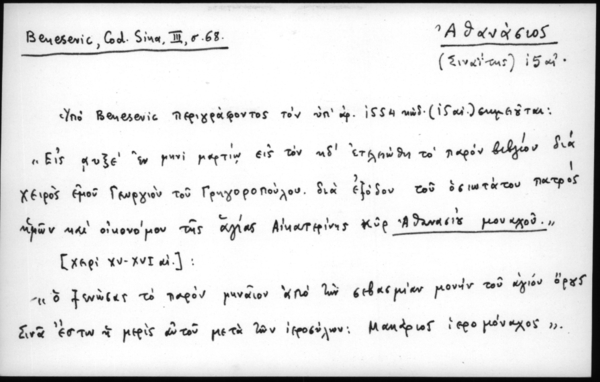 Benesevic, Cod. Sina, III, σ. 68.
Ἀθανάσιος
(Σιναΐτης) ι5 αἰ.
Ὑπό Benesevic περιγράφοντος τόν ὑπ' ἀρ. 1554 κώδ. (ι5 αἰ.) σημειοῦται:
« Εἰς αυξε' ἐν μηνί μαρτίῳ εἰς τόν κδ' ἐτελειώθη τό παρόν βιβλίον διά
χειρός ἐμοῦ Γεωργίου τοῦ Γρηγοροπούλου. διά ἐξόδου τοῦ ὁσιωτάτου πατρός
ἡμῶν καί οἰκονόμου τῆς ἁγίας Αἰκατερίνης κῦρ Ἀθανασίου μοναχοῦ. »
[χειρί XV-XVI αἰ.] :
« ὁ ξενώσας τό παρόν μηναῖον ἀπό τήν σεβασμίαν μονήν τοῦ ἁγίου ὄρους
Σινᾶ ἔστω ἡ μερίς αὐτοῦ μετά τῶν ἱεροσύλων: Μακάριος ἱερομόναχος ».